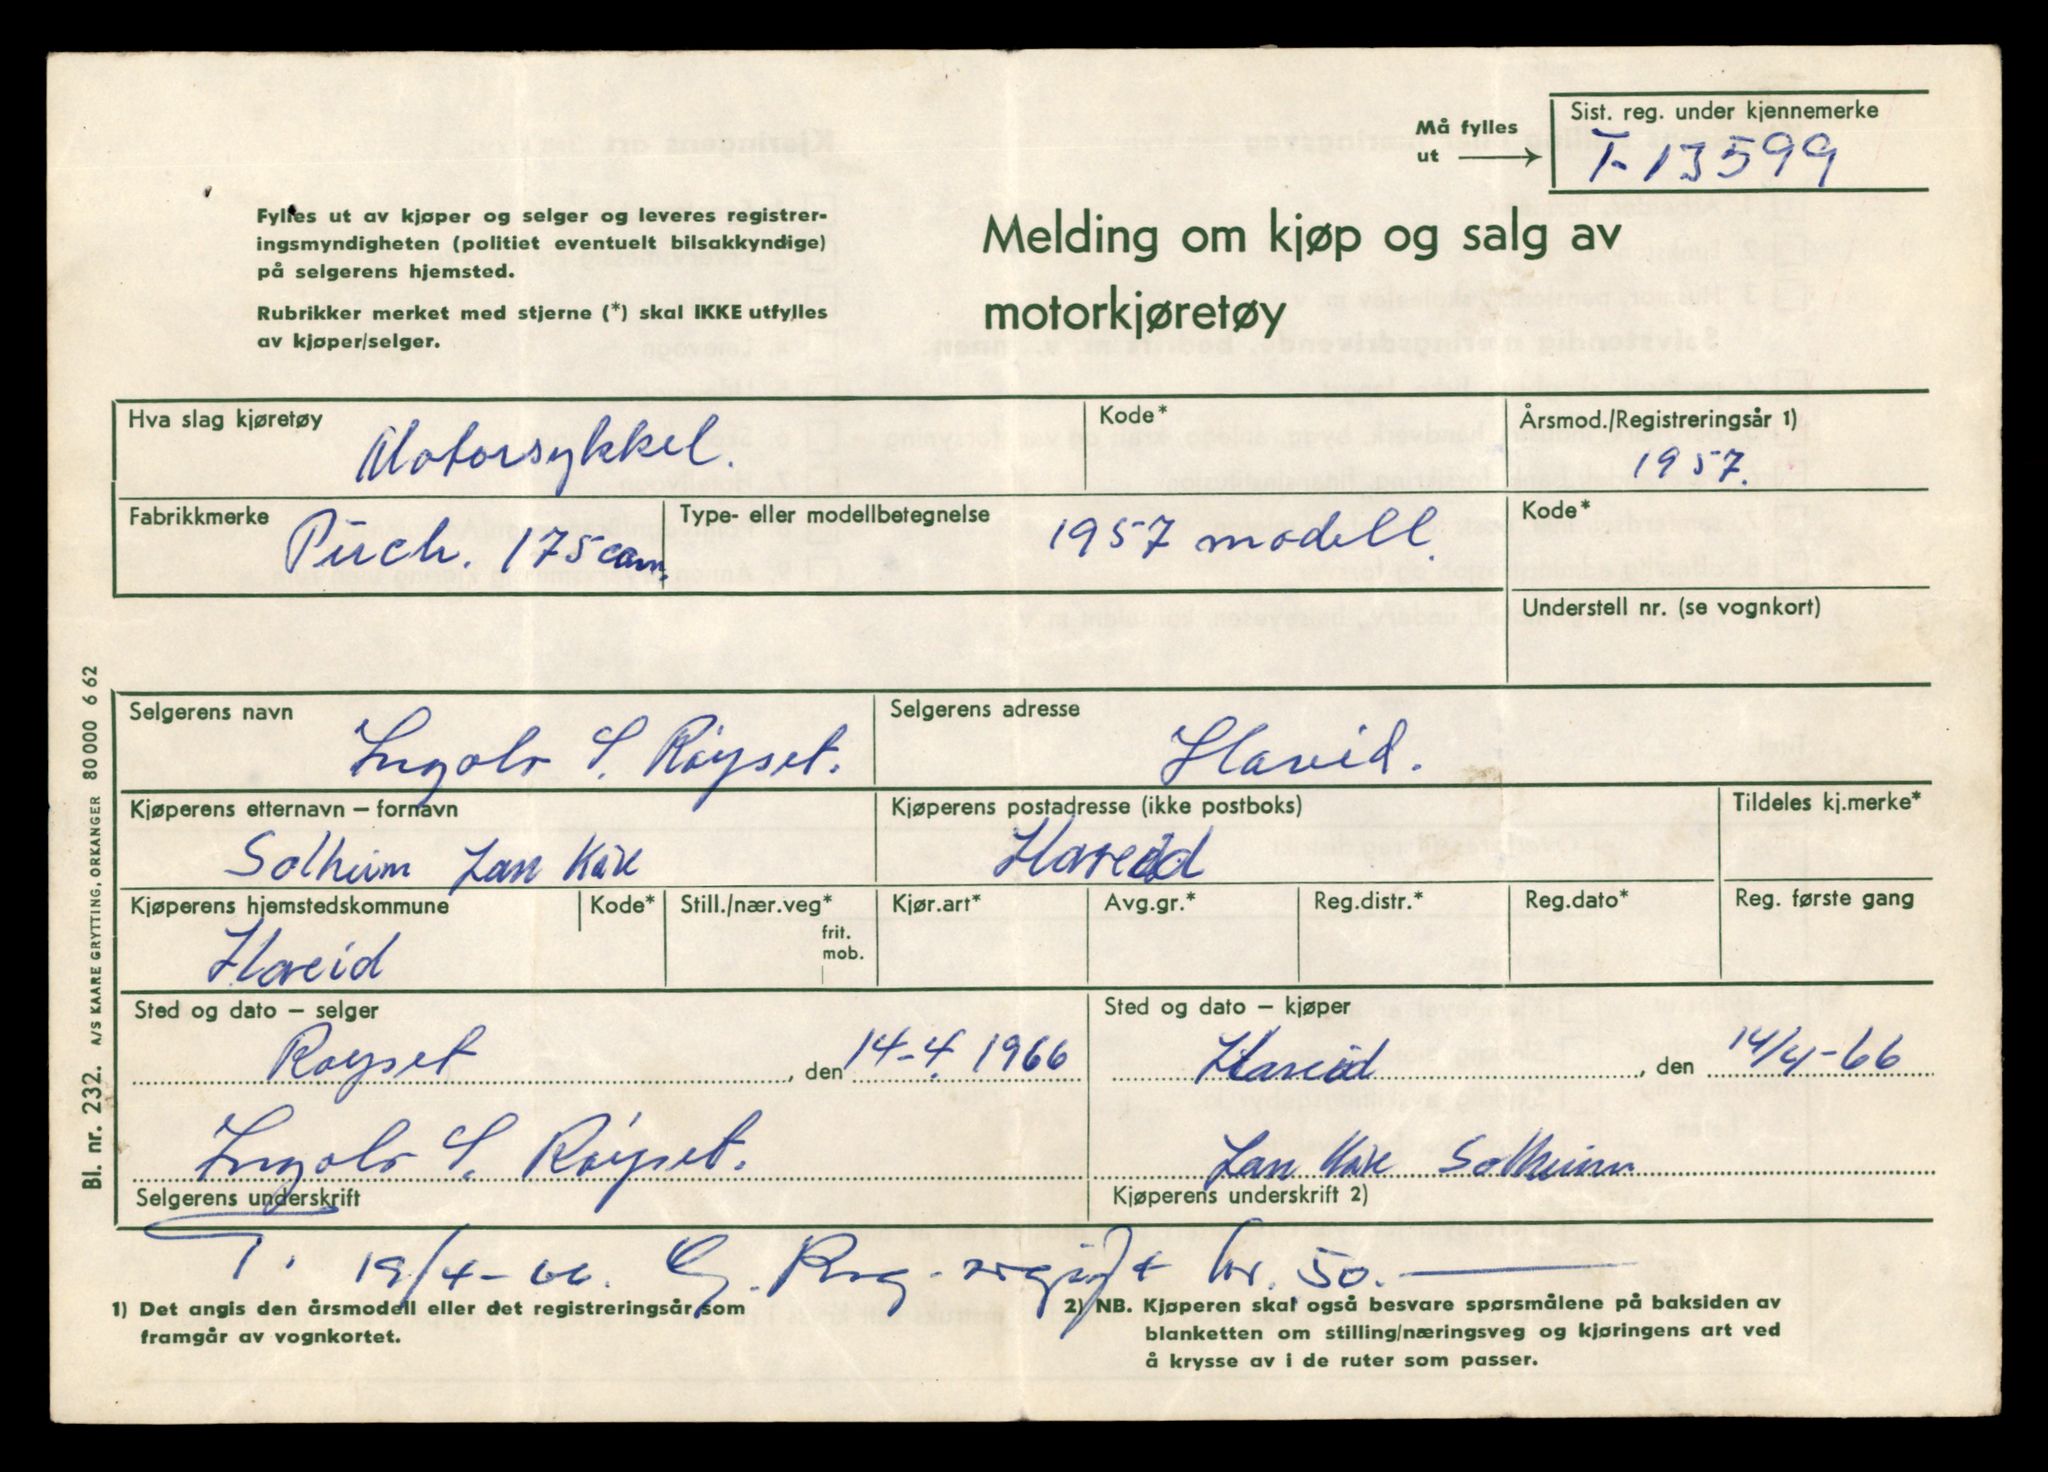 Må fylles
ut
Sist. reg. under kjennemerke
T-13599
Fylles ut av kjøper og selger og leveres registrer-
ingsmyndigheten (politiet eventuelt bilsakkyndige)
på selgerens hjemsted.
Rubrikker merket med stjerne (*) skal IKKE utfylles
av kjøper/selger.
Melding om kjøp og salg av
motorkjøretøy
Hva slag kjøretøy
Motorsykkel.
Kode*
Årsmod./Registreringsår 1)
1957.
Fabrikkmerke
Puch. 175 ccm.
Type- eller modellbetegnelse
1957 modell.
Kode*
Understell nr. (se vognkort)
Selgerens navn
Ingolv S. Røyset.
Selgerens adresse
Hareid.
Kjøperens etternavn – fornavn
Solheim Jan Kåre
Kjøperens postadresse (ikke postboks)
Hareid
Tildeles kj.merke*
Kjøperens hjemstedskommune
Hareid
Kode*
Still./nær.veg*
frit.
mob.
Kjør.art*
Avg.gr.*
Reg.distr.*
Reg.dato*
Reg. første gang
Sted og dato – selger
Røyset, den 14-4. 1966
Sted og dato – kjøper
Hareid, den 14/4-66
Ingolv S. Røyset.
Selgerens underskrift
Jan Kåre Solheim
Kjøperens underskrift 2)
T. 19/4-66. Reg. avgift kr. 50.
1) Det angis den årsmodell eller det registreringsår som
framgår av vognkortet.
2) NB. Kjøperen skal også besvare spørsmålene på baksiden av
blanketten om stilling/næringsveg og kjøringens art ved
å krysse av i de ruter som passer.
Bl. nr. 232. A/S KAARE GRYTTING, ORKANGER 80000 6 62